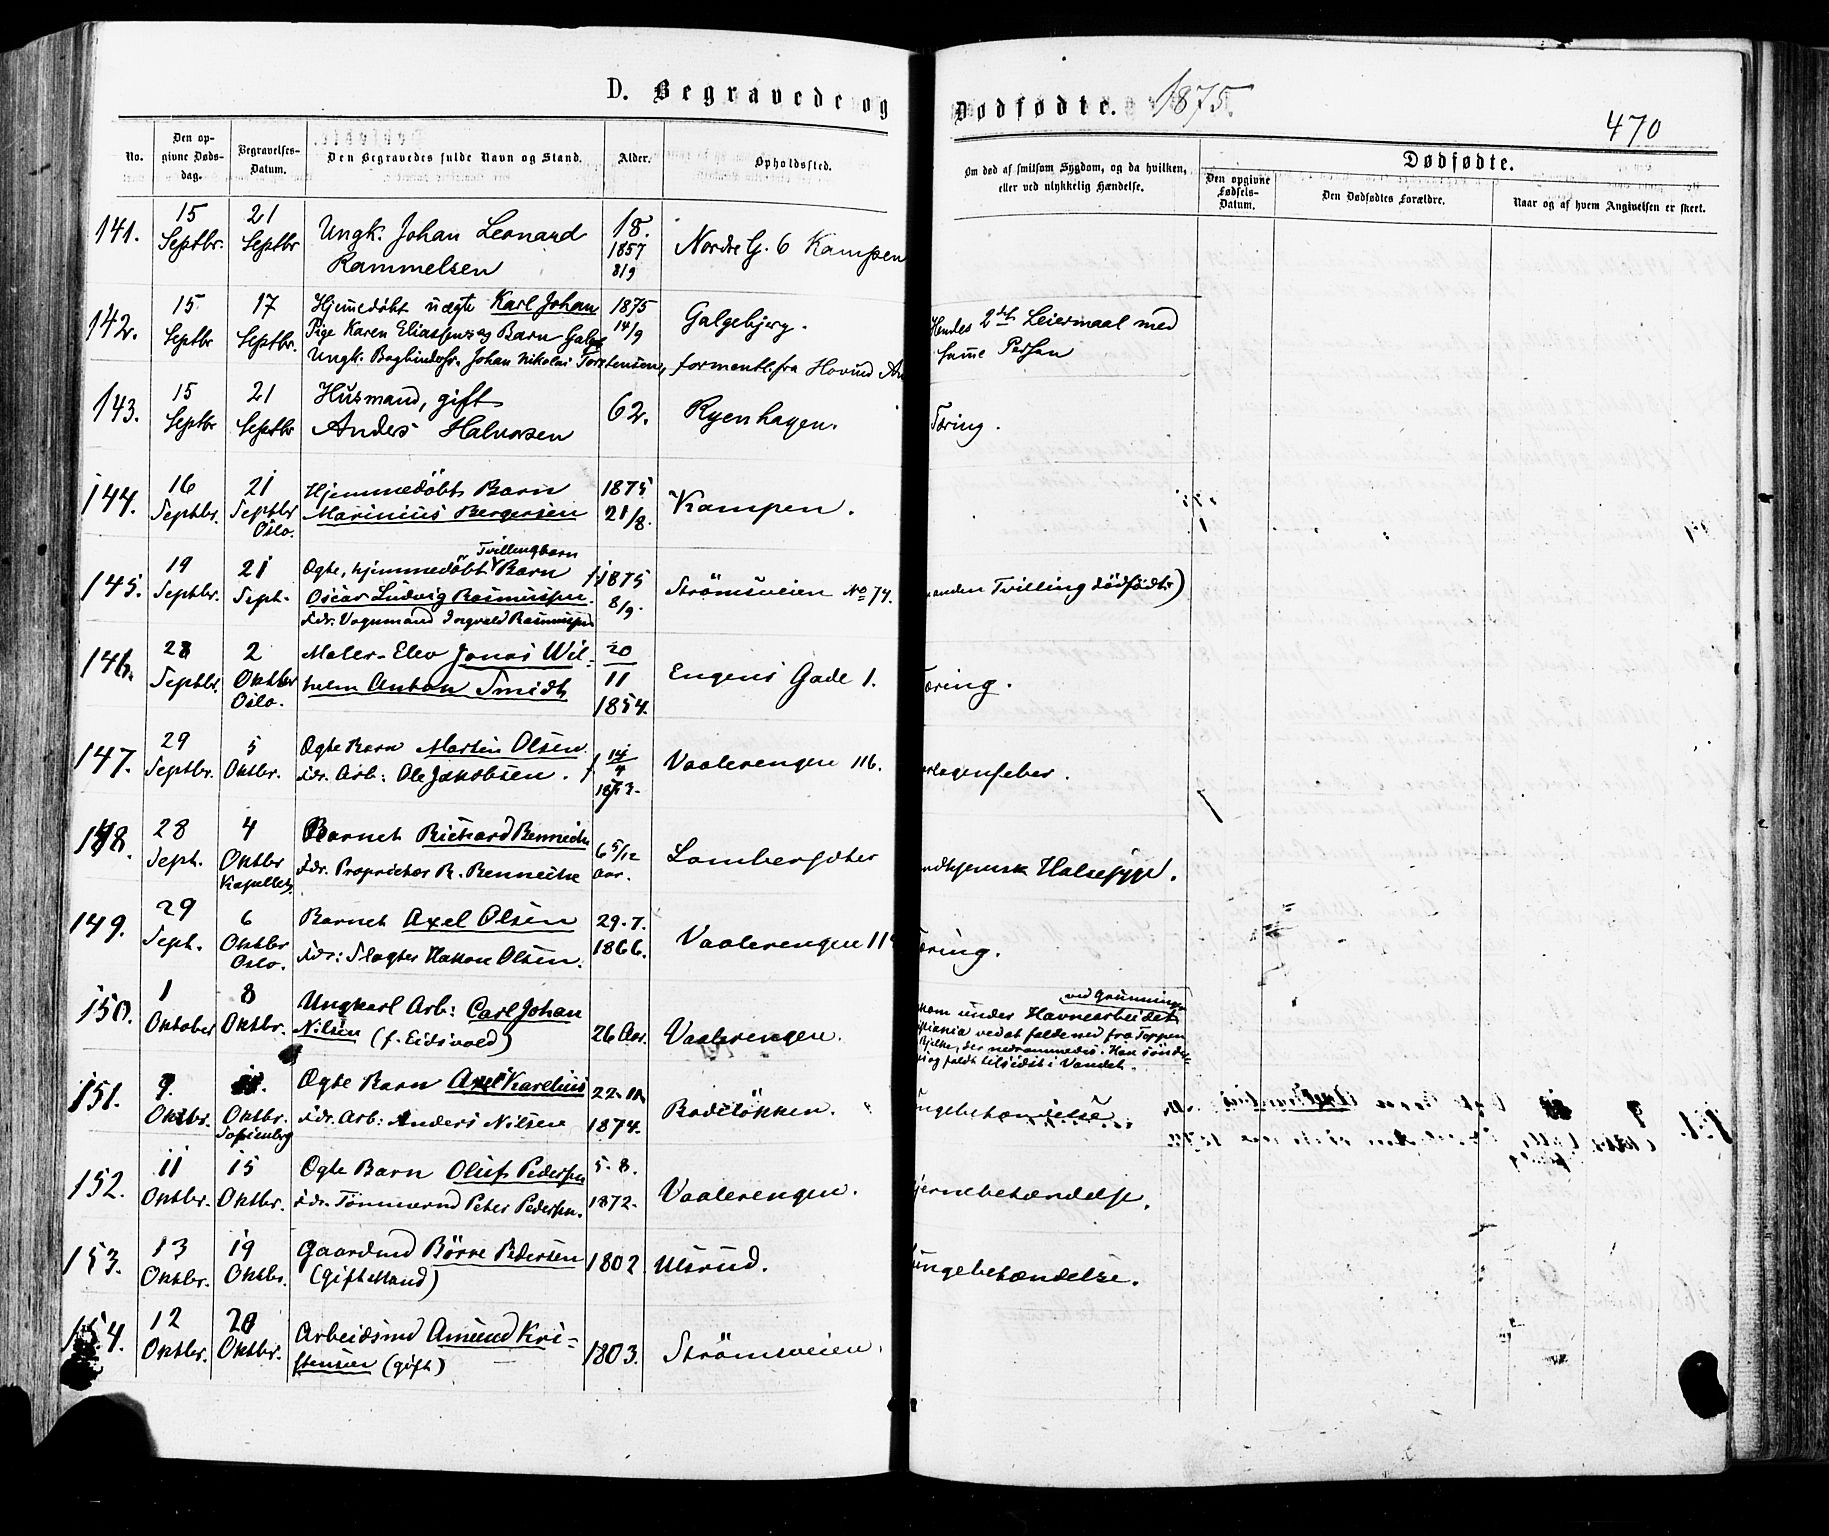 D. Begravede og Dødfødte. 1875.
470
No.
Den opgivne Dødsdag.
Begravelses-Datum.
Den Begravedes fulde Navn og Stand.
Alder.
Opholdssted.
Om død af smitsom Sygdom, og da hvilken, eller ved ulykkelig Hændelse.
Dødfødte.
Den opgivne Fødsels-Datum.
Den Dødfødtes Forældre.
Naar og af hvem Angivelsen er skeet.
141. 15 Septbr. 21 Septbr Ungk. Johan Leonard 18. Nordre G. 6 Kampen
Rammelsen 1857 8/9
142. 15 Septbr 17 Septbr. Hjemmedøbt uægte Karl Johan 1875 14/9 Galgebjerg. Hendes 2det Leiermaal med
Pige Karen Eliassens og Barn samme Person
Ungk. Bogbindersv. Johan Nikolai Torstensen, formentl. fra Hovind
143. 15 Septbr 21 Septbr Husmand, gift 62. Ryenhagen. Tæring.
Anders Halvorsen
144. 16 Septbr. 21 Septbr Oslo. Hjemmedøbt Barn 1875 21/8. Kampen.
Marinius Bergersen
145. 19 Septbr. 21 Septr. Ægte, hjemmedøbt Tvillingbarn Barn 1875 8/9. Strömsveien No 74. anden Tvilling dödfödt)
Oscar Ludvig Rasmussen.
Fdr. Vognmand Ingvald Rasmussen
146. 28 Septbr. 2 Oktbr Oslo. Maler-Elev Jonas Wil- 20/11 1854. Engens Gade 1. æring.
helm Anton Smidt
147. 29 Septbr. 5 Oktbr. Ægte Barn Martin Olsen. 14/4 1873. Vaalerengen 116. arlagensfeber.
Fdr. Arb: Ole Jakobsen.
148. 28 Sept. 4 Oktbr Kapellet. Barnet Richard Benneche 6 5/12 aar. Lambertsæter Halsesyge.
Fdr. Proprietær R. Benneche
149. 29 Sept. 6 Oktbr Oslo. Barnet Axel Olsen 29.7. 1866. Vaalerengen æring.
Fdr: Slagter Hakon Olsen.
150. 1 Oktober 8 Oktbr. Ungkarl Arb: Carl Johan 26 Aar. Vaalerengen. ved Grønningen
Nilsen (f. Eidsvold) kom under Havnearbeidet
ved at falde ned fra Toppen
Bjelke, der nedrammedes. Han
og faldt tilsidst i Vandet.
151. 9. Oktbr. Oktbr. Sofienberg Ægte Barn Axel Karelius 22. 1874. Badeløkken. ungebetændelse.
Fdr. Arb: Anders Nilsen
152. 11 Oktbr. 15 Oktbr. Ægte Barn Oluf Pedersen 5.8. 1872. Vaalerengen. jernebetændelse.
Fdr. Tömmermd Peter Pedersen.
153. 13 Oktbr. 19 Oktbr. Gaardmd Børre Pedersen 1802 Ulsrud. ungebetændelse.
(gift Mand)
154. 12 Oktbr. 20 Oktbr. Arbeidsmd Amund Kri- 1803. Strömsveien.
stensen (gift)